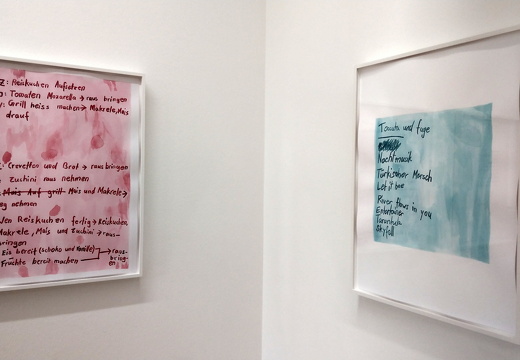 Z: Reiskuchen Aufsetzen
Tomaten Mozarella → raus bringen
Grill heiss machen → Makrele, Mais
drauf
: Crevetten und Brot → raus bringen
Zuchini raus nehmen
Mais Auf grill Mais und Makrele →
eg nehmen
Reiskuchen fertig → Reiskuchen,
Makrele, Mais und Zuchini → raus-
bringen
Eis bereit (Schoko und Vanille) → raus-
Früchte bereit machen bring-
en
Tomata und fuge
Nachtmusik
Türkischer Marsch
Let it bee
River flows in you
Entertainer
Tarantula
Skyfall